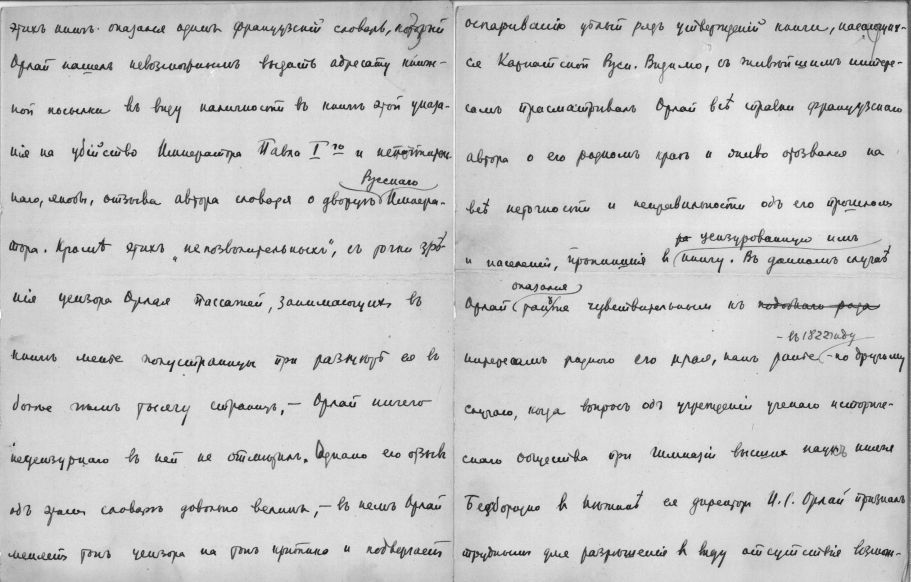 этихъ книгъ оказался одинъ французскій словарь, который
Орлай нашелъ невозможнымъ выдать адресату книж-
ной посылки въ виду наличности въ книгѣ этой указа-
нія на убійство Императора Павла I го и
наго, якобы, отзыва автора словаря о дворцѣ Русскаго Импера-
тора. Кромѣ этихъ „непозволительныхъ", съ точки зрѣ-
нія цензора Орлая пассажей, занимающихъ въ
книгѣ менѣе полустраницы при размѣрѣ ея въ
болѣе чѣмъ тысячу страницъ, — Орлай ничего
нецензурнаго въ ней не отмѣтилъ. Однако его отзывъ
объ этомъ словарѣ довольно великъ, — въ немъ Орлай
мѣняетъ тонъ цензора на тонъ критика и подвергаетъ
оспариванію цѣлый рядъ утвержденій книги, касающих-
ся Карпатской Руси. Видимо, съ живѣйшимъ интере-
сомъ просматривалъ Орлай всѣ справки французскаго
автора о его родномъ краѣ и живо отозвался на
всѣ неточности и неправильности объ его прошломъ
и населеніи, проникшія въ цензурованную имъ книгу. Въ данномъ случаѣ
Орлай оказался также чувствительнымъ къ подобнаго рода
интересамъ родного его края, какъ ранѣе — въ 1822 году — по другому
случаю, когда вопросъ объ учрежденіи ученаго историче-
скаго общества при Гимназіи высшихъ наукъ князя
Безбородко въ Нѣжинѣ ея директоръ И. С. Орлай призналъ
труднымъ для разрѣшенія въ виду отсутствія возмож-